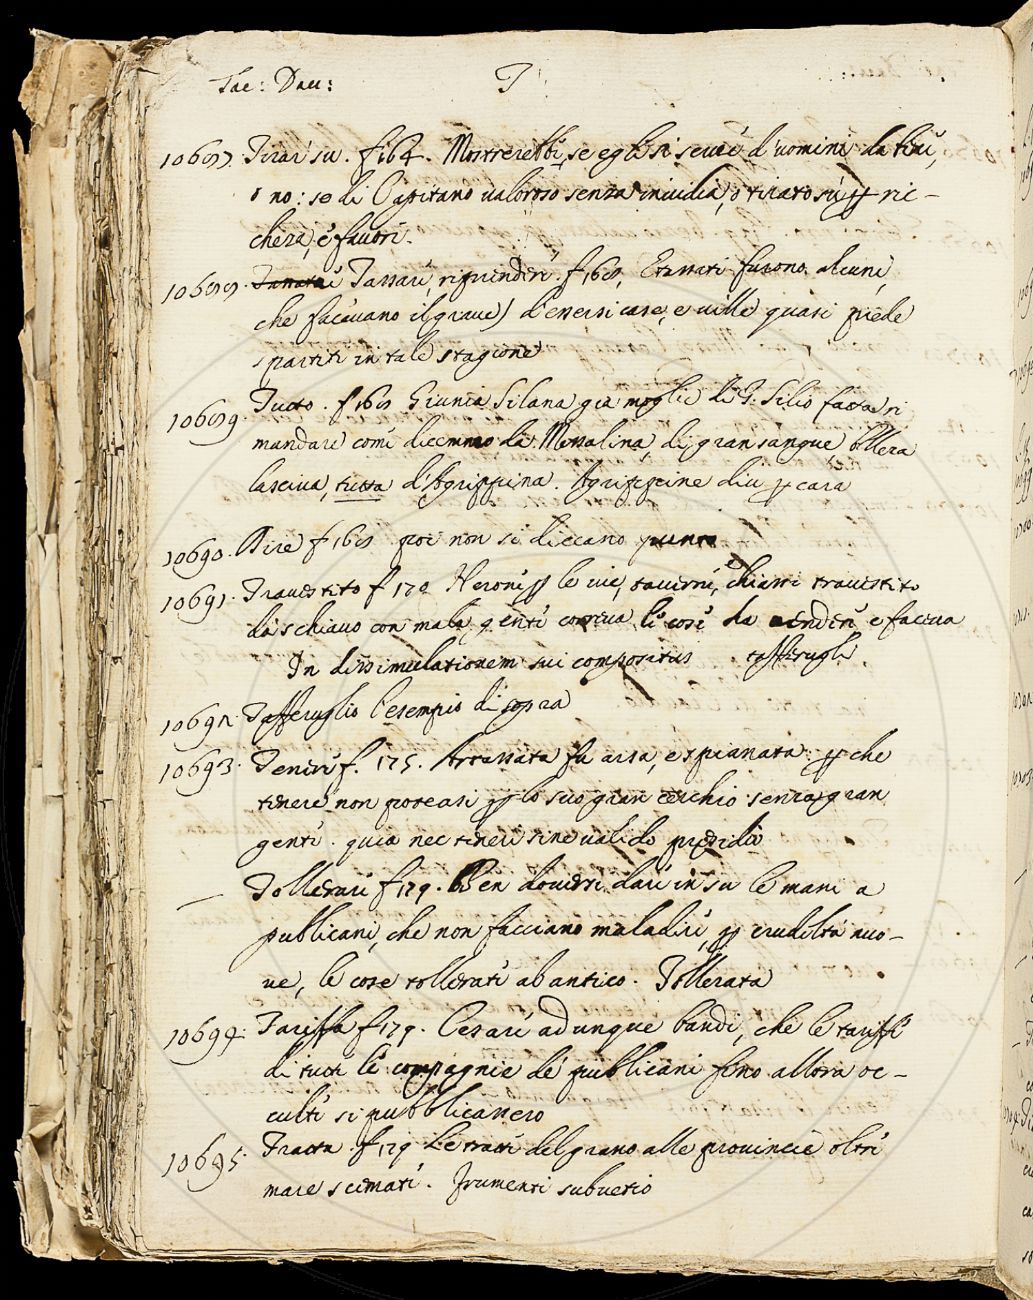 Tac: Dau: T
10687. Tirar su. f 164. Mostrerebbe, se egli si serue d'uomini da bene,
o no: se di Capitano ualoroso senza inuidia, o tirato su p ric-
cheza, e fauori.
10688. Tassare, riprendere, f 168, e tassati furono alcuni,
che faceuano il graue) d'auersi case, e uille quasi piede
spartiti in tale stagione
10689. Tutto. f 168 Giunia Silana gia moglie di G. Silio fatta ri
mandare come dicemmo da Messalina, di gran sangue, bella
lasciua, tutta d'Agrippina. Agrippine diu p cara
10690. Dire f 168 poi non si diceano
10691. Trauestito f 170 Nerone p le uie, tauerne, chiassi trauestito
da schiauo con mala gente correua le cose da uendere e faceua
In dissimulationem sui compositus tafferugli
10692. Tafferuglio l'esempio di sopra
10693. Tenere f. 175. Artassata fu arsa, e spianata: p che
tenere non poteasi p lo suo gran cerchio senza gran
gente. quia nec teneri sine ualido presidio
— Tollerare f 179. Ben douersi dare in su le mani a
publicani, che non facciano maladire, p crudeltà nuo-
ue, le cose tollerate ab antico. Tollerata
10694. Tariffa f 179. Cesare adunque bandì, che le tariffe
di tutte le compagnie de' pubblicani fino allora oc-
culte si pubblicassero
10695. Tratta. f 179 Le tratte del grano alle prouincie oltre
mare scemate. frumenti subuectio